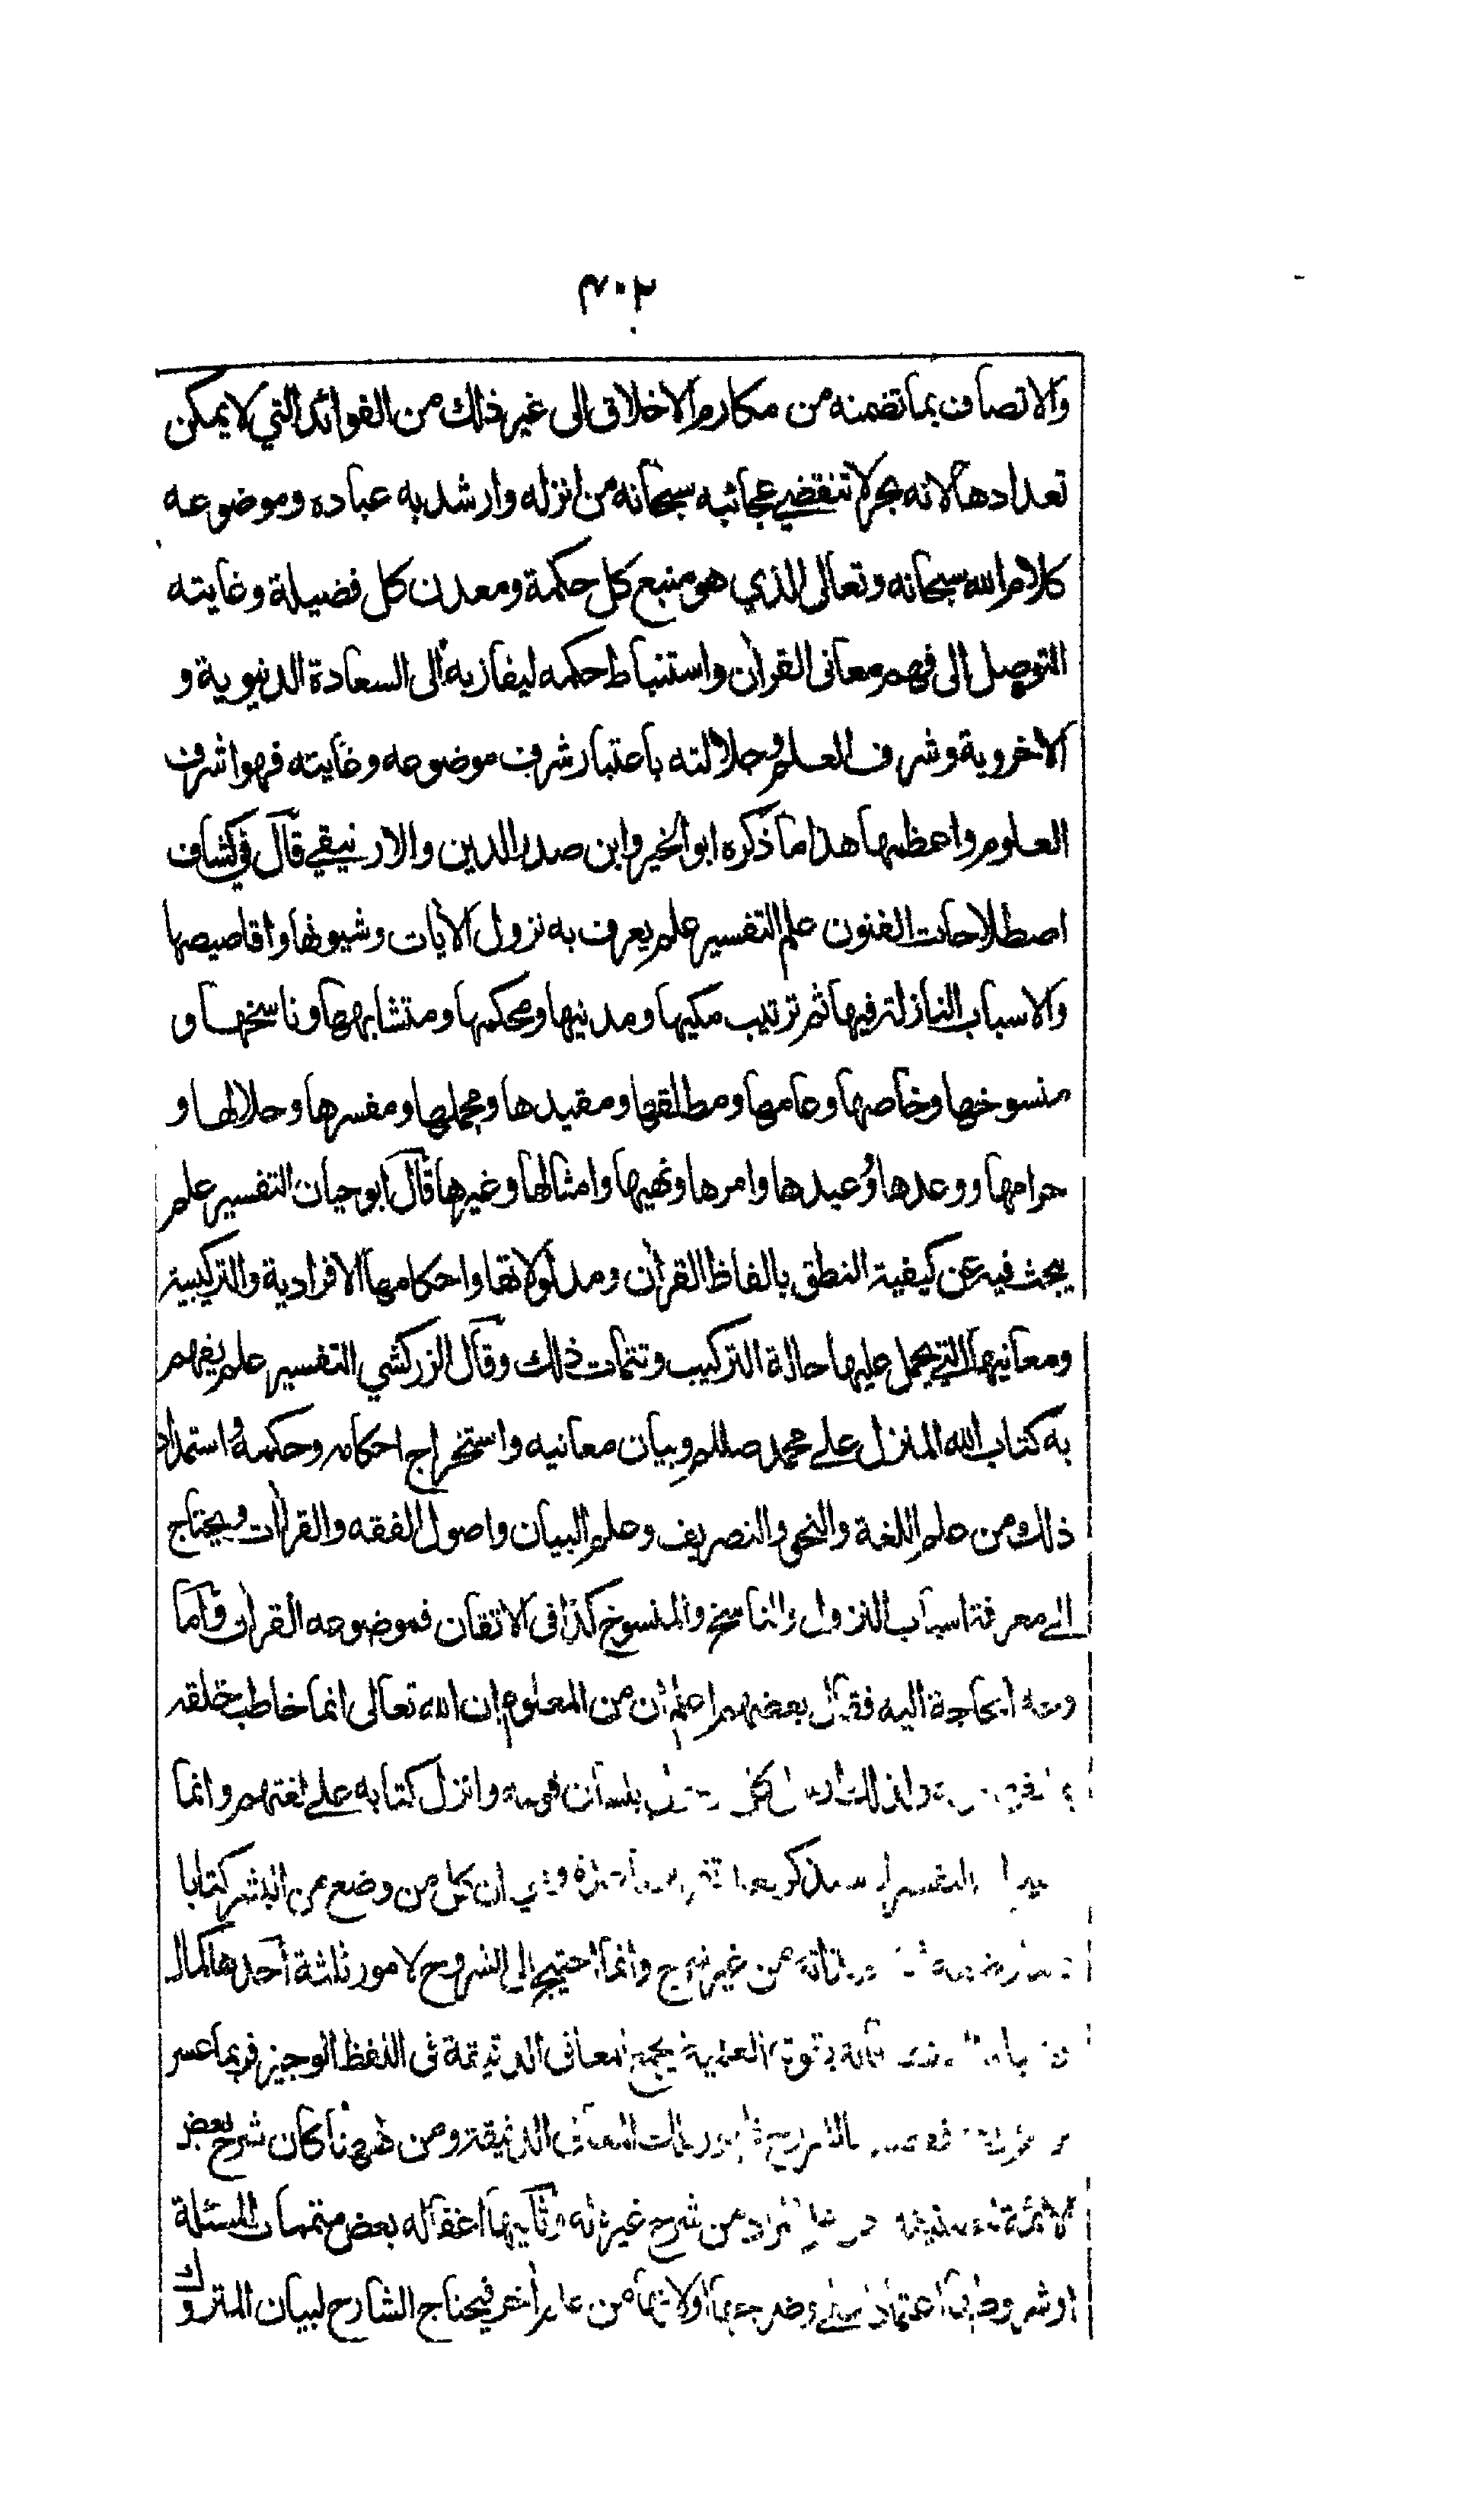 ٣٠٢
والاتصاف بما تضمنه من مكارم الاخلاق الى غير ذلك من الفوائد التي لا يمكن
تعدادها لانه بحر لا تنقضي عجائبه سبحانه من انزله وارشد به عباده وموضوعه
كلام الله سبحانه وتعالى الذي هو منبع كل حكمة ومعدن كل فضيلة وغايته
التوصل الى فهم معاني القرآن واستنباط حكمه ليفاز به الى السعادة الدنيوية و
الاخروية وشرف العلم وجلالته باعتبار شرف موضوعه وغايته فهو اشرف
العلوم واعظمها هذا ما ذكره ابو الخير وابن صدر الدين والارنيقي قال في كشاف
اصطلاحات الفنون علم التفسير علم يعرف به نزول الآيات وشيونها واقاصيصها
والاسباب النازلة فيها ثم ترتيب مكيها ومدنيها ومحكمها ومتشابهها وناسخها و
منسوخها وخاصها وعامها ومطلقها ومقيدها ومجملها ومفسرها وحلالها و
حرامها ووعدها ووعيدها وامرها ونهيها وامثالها وغيرها قال ابو حيان التفسير علم
يبحث فيه عن كيفية النطق بالفاظ القرآن ومدلولاتها واحكامها الافرادية والتركيبية
ومعانيها التي يحمل عليها حالة التركيب وتتمات ذلك وقال الزركشي التفسير علم يفهم
به كتاب الله المنزل على محمد صللم وبيان معانيه واستخراج احكامه وحكمه واستمداد
ذلك من علم اللغة والنحو والتصريف وعلم البيان واصول الفقه والقرآت ويحتاج
الى معرفة اسباب النزول والناسخ والمنسوخ كذا في الاتقان فموضوعه القرآن واما
وجه الحاجة اليه فقال بعضهم اعلم ان من المعلوم ان الله تعالى انما خاطب خلقه
ولذلك ارسل كل بلسان قومه وانزل كتابه على لغتهم وانما
التفسير سيذكر بعد ان كل من وضع من البشر كتابا
من غير شرح وانما احتيج الى الشروح لامور ثلثة احدها كمال
العلمية يجمع المعاني الدقيقة في اللفظ الوجيز فربما عسر
المعاني الدقيقة ومن ههنا كان شرح بعض
الائمة من شرح غيره له وثانيها اغفاله بعض متممات المسئلة
او شروطها اعتمادا على وضوحها او لانها من علم آخر فيحتاج الشارح لبيان المتروك